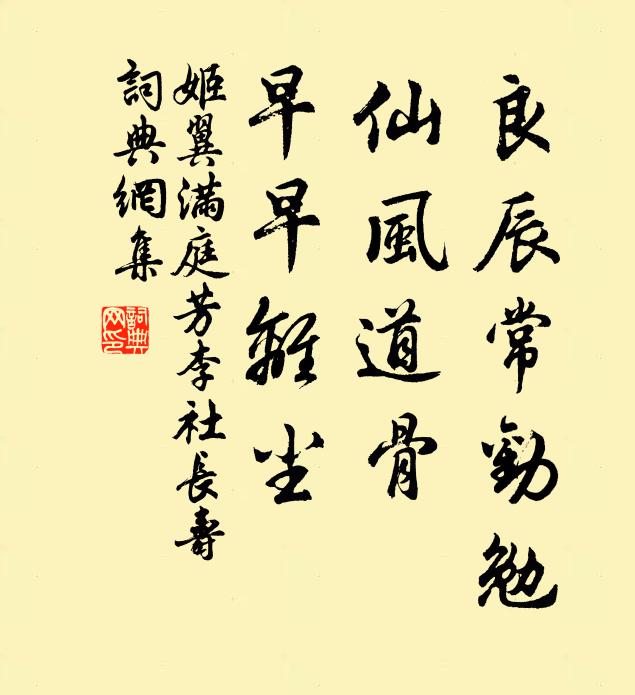 良辰常勸勉
仙風道骨
早早離尘
姬翼滿庭芳李社長壽
詞典網集
詞典网印